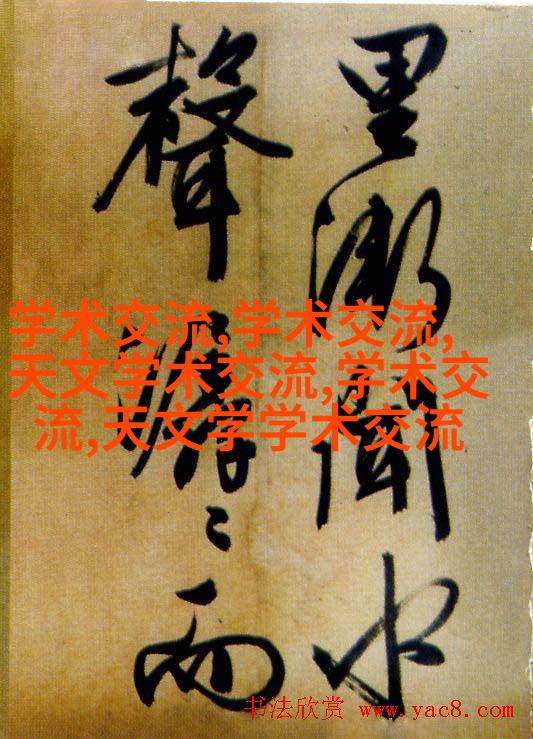 里漸聞水
聲潺〻而
学术交流,学术交流,
天文学术交流,学术交
流,天文学学术交流
书法欣赏 www.yac8.com